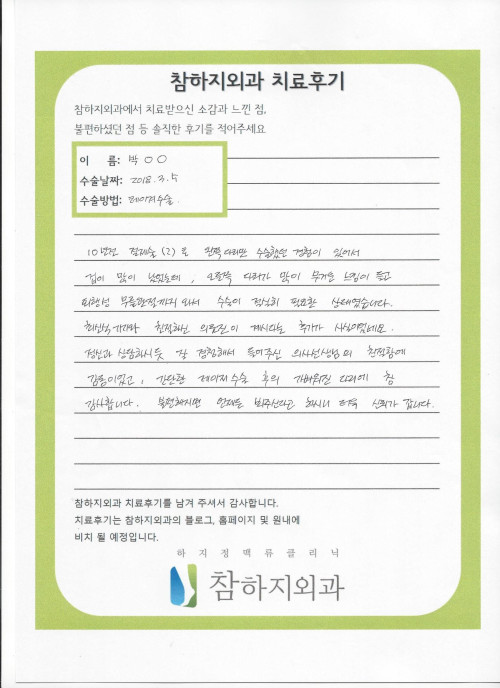 참하지외과 치료후기
참하지외과에서 치료받으신 소감과 느낀 점,
불편하셨던 점 등 솔직한 후기를 적어주세요
이 름: 박 ○○
수술날짜: 2018. 3. 5
수술방법: 레이저수술.
10년전 절개술 (2) 을 왼쪽 다리만 수술했던 경험이 있어서
겁이 많이 났었는데, 오른쪽 다리가 많이 무거운 느낌이 들고
퇴행성 무릎관절까지 와서 수술이 절실히 필요한 상태였습니다.
최신식 기기와 친절하신 의료진이 계시다는 후기가 사실이었네요.
정신과 상담하시듯 잘 경청해서 들어주신 의사선생님의 친절함에
감동이었고, 간단한 레이저 수술 후의 가벼워진 다리에 참
감사합니다. 불편해지면 언제든 봐주신다고 하시니 더욱 신뢰가 갑니다.
참하지외과 치료후기를 남겨 주셔서 감사합니다.
치료후기는 참하지외과의 블로그, 홈페이지 및 원내에
비치 될 예정입니다.
하지정맥류클리닉
참하지외과